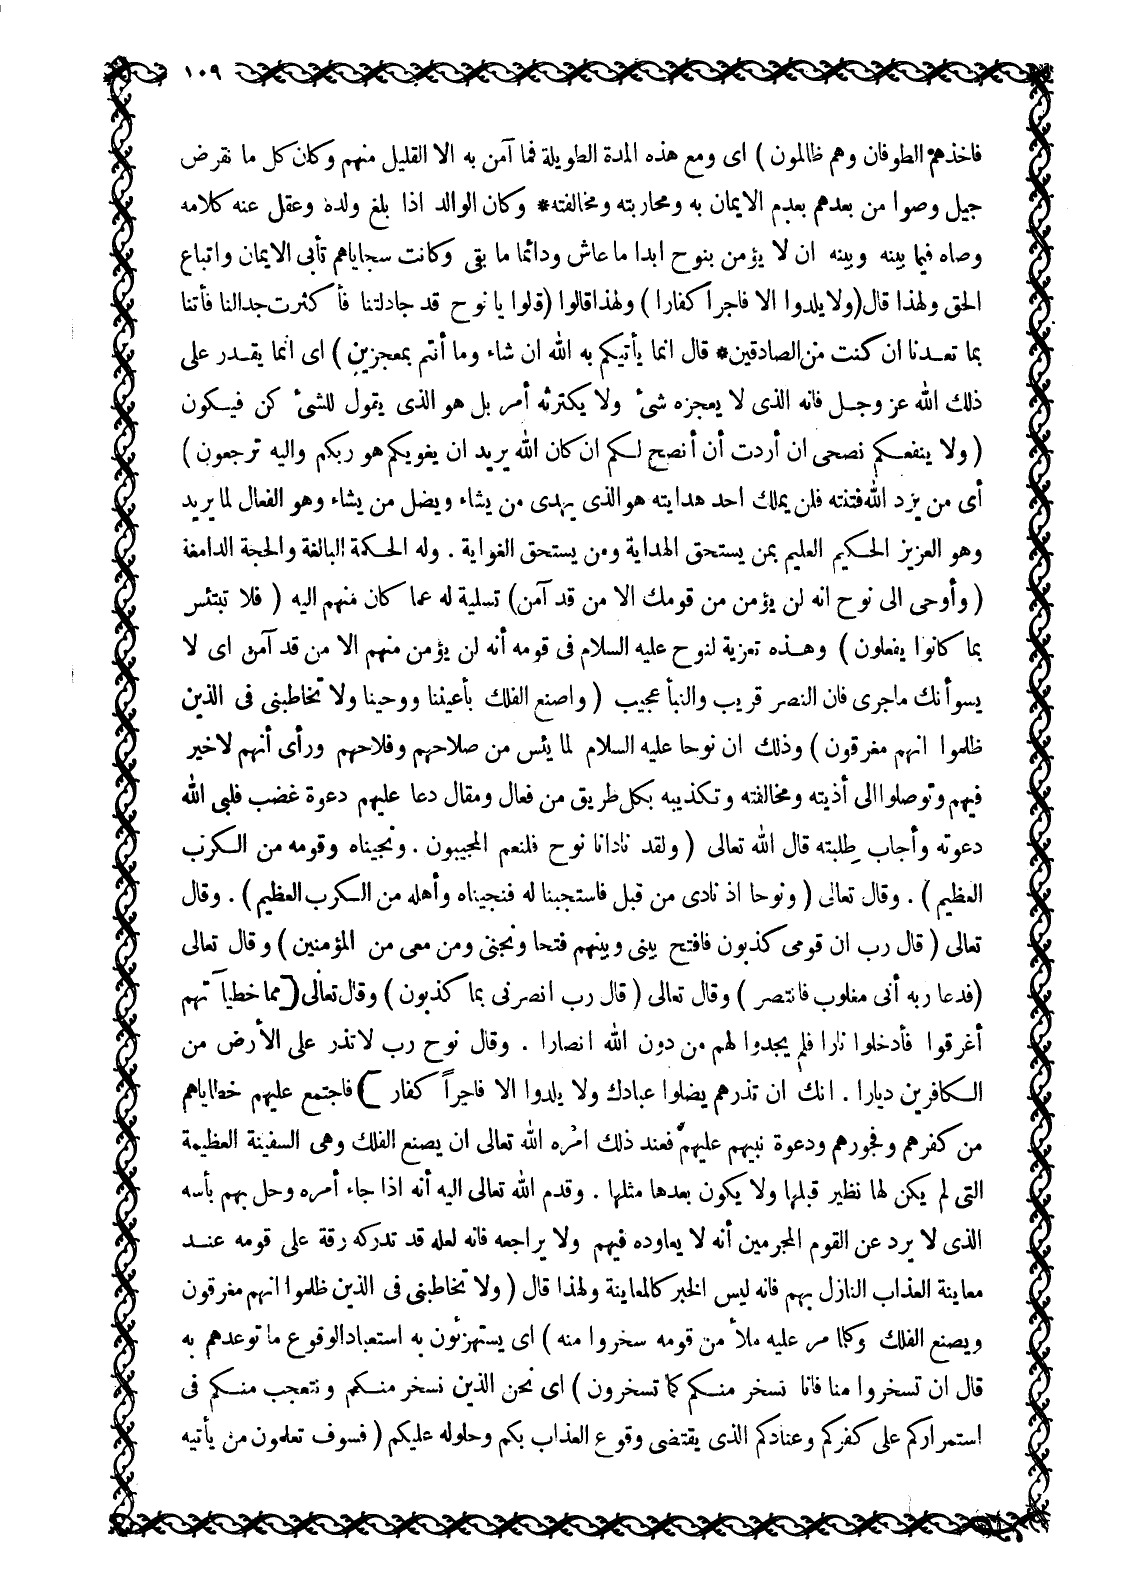 ١٠٩
فاخذهم الطوفان وهم ظالمون ) اى ومع هذه المدة الطويلة فما آمن به الا القليل منهم وكان كل ما نقرض
جيل وصوا من بعدهم بعدم الايمان به ومحاربته ومخالفته* وكان الوالد اذا بلغ ولده وعقل عنه كلامه
وصاه فيما بينه وبينه ان لا يؤمن بنوح ابدا ما عاش ودائما ما بقى وكانت سجاياهم تأبى الايمان واتباع
الحق ولهذا قال (ولا يلدوا الا فاجرا كفارا ) ولهذا قالوا (قلوا يا نوح قد جادلتنا فأ كثرت جدالنا فأتنا
بما تعدنا ان كنت من الصادقين* قال انما يأتيكم به الله ان شاء وما أنتم بمعجزين ) اى انما يقدر على
ذلك الله عز وجل فانه الذى لا يعجزه شىٔ ولا يكترثه أمر بل هو الذى يقول للشىٔ كن فيكون
( ولا ينفعكم نصحى ان أردت أن أنصح لكم ان كان الله يريد ان يغويكم هو ربكم واليه ترجعون )
أى من يرد الله فتنته فلن يملك احد هدايته هو الذى يهدى من يشاء ويضل من يشاء وهو الفعال لما يريد
وهو العزيز الحكيم العليم بمن يستحق الهداية ومن يستحق الغواية . وله الحكمة البالغة والحجة الدامغة
( وأوحى الى نوح انه لن يؤمن من قومك الا من قد آمن) تسلية له عما كان منهم اليه ( فلا تبتئس
بما كانوا يفعلون ) وهذه تعزية لنوح عليه السلام فى قومه أنه لن يؤمن منهم الا من قد آمن اى لا
يسوأنك ماجرى فان النصر قريب والنبأ عجيب ( واصنع الفلك بأعيننا ووحينا ولا تخاطبنى فى الذين
ظلموا انهم مغرقون ) وذلك ان نوحا عليه السلام لما يئس من صلاحهم وفلاحهم ورأى أنهم لاخير
فيهم وتوصلوا الى أذيته ومخالفته وتكذيبه بكل طريق من فعال ومقال دعا عليهم دعوة غضب فلبى الله
دعوته وأجاب طلبته قال الله تعالى ( ولقد نادانا نوح فلنعم المجيبون . ونجيناه وقومه من الكرب
العظيم ) . وقال تعالى ( ونوحا اذ نادى من قبل فاستجبنا له فنجيناه وأهله من الكرب العظيم ) . وقال
تعالى ( قال رب ان قومى كذبون فافتح بينى وبينهم فتحا ونجنى ومن معى من المؤمنين ) وقال تعالى
(فدعا ربه أنى مغلوب فانتصر ) وقال تعالى ( قال رب انصرنى بما كذبون ) وقال تعالى [ مما خطيآ تهم
أغرقوا فأدخلوا نارا فلم يجدوا لهم من دون الله انصارا . وقال نوح رب لاتذر على الأرض من
الكافرين ديارا . انك ان تذرهم يضلوا عبادك ولا يلدوا الا فاجراً كفار ] فاجتمع عليهم خطاياهم
من كفرهم وفجورهم ودعوة نبيهم عليهم فعند ذلك امره الله تعالى ان يصنع الفلك وهى السفينة العظيمة
التى لم يكن لها نظير قبلها ولا يكون بعدها مثلها . وقدم الله تعالى اليه أنه اذا جاء أمره وحل بهم بأسه
الذى لا يرد عن القوم المجرمين أنه لا يعاوده فيهم ولا يراجعه فانه لعله قد تدركه رقة على قومه عند
معاينة العذاب النازل بهم فانه ليس الخبر كالمعاينة ولهذا قال ( ولا تخاطبنى فى الذين ظلموا انهم مغرقون
ويصنع الفلك وكلما مر عليه ملأ من قومه سخروا منه ) اى يستهزئون به استعبادا لوقوع ما توعدهم به
قال ان تسخروا منا فانا نسخر منكم كما تسخرون ) اى نحن الذين نسخر منكم ونتعجب منكم فى
استمراركم على كفركم وعنادكم الذى يقتضى وقوع العذاب بكم وحلوله عليكم ( فسوف تعلمون من يأتيه